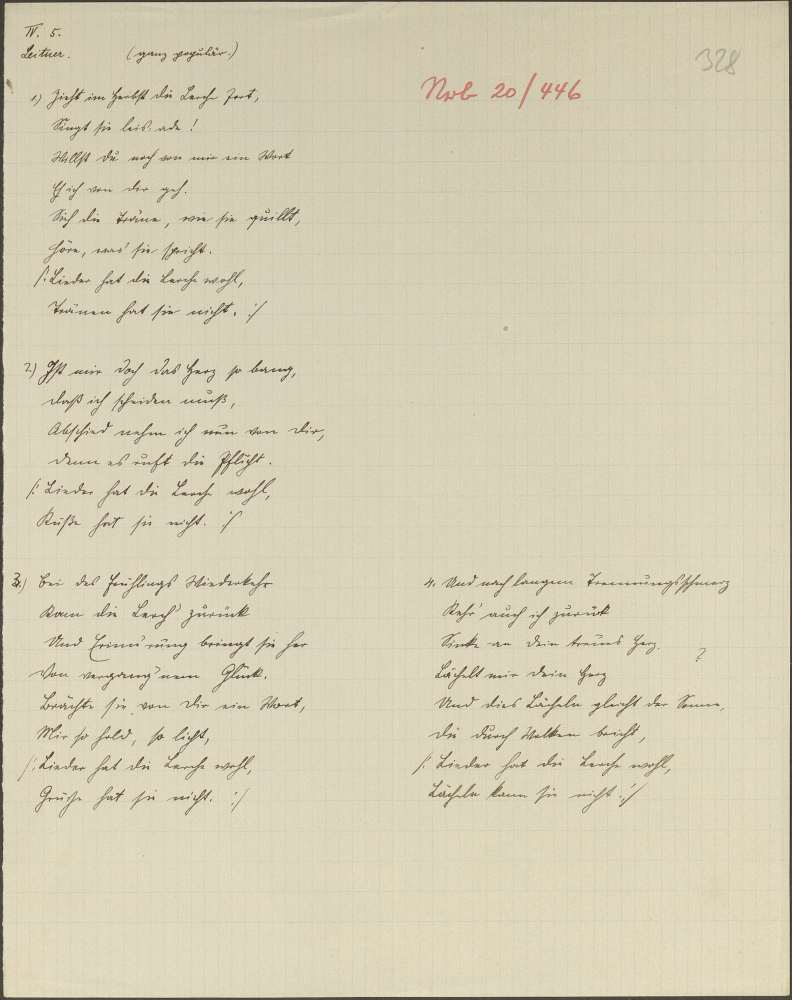 IV. 5.
Leitner. (ganz populär.)
328
Nrb 20/446
1) Zieht im Herbst die Lerche fort,
Singt sie leis ade!
Willst du noch von mir ein Wort
Eh ich von dir geh.
Sieh die Träne, wie sie quillt,
Höre, was sie spricht.
/: Lieder hat die Lerche wohl,
Tränen hat sie nicht. :/
2) Ist mir doch das Herz so bang,
daß ich scheiden muß,
Abschied nehm ich nun von dir,
denn es ruft die Pflicht.
/: Lieder hat die Lerche wohl,
Küße hat sie nicht. :/
3.) Bei des Frühlings Wiederkehr
Kam die Lerch' zurück
Und Erinn'rung bringt sie her
Von vergang'nem Glück.
Brächte sie von dir ein Wort,
Mir so hold, so licht,
/: Lieder hat die Lerche wohl,
Grüße hat sie nicht. :/
4. Und nach langem Trennungsschmerz
Kehr' auch ich zurück
Sinke an dein treues Herz.
?
Lächelt mir dein Herz
Und dies Lächeln gleicht der Sonne,
die durch Wolken bricht,
/: Lieder hat die Lerche wohl,
Lächeln kann sie nicht :/